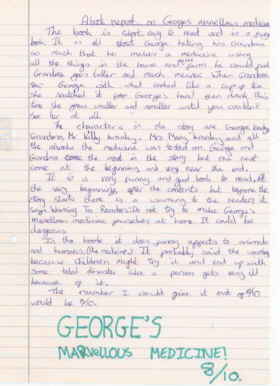 A book report on George's marvellous medicine
The book is about and
book. It is all about George hating his Grandma
so much that he makes a medicine using
all the things in the house and farm he could find
Grandma gets taller and much meaner. When Grandma
saw George with what looked like a cup of tea
she it from George's hand drank this
time she grew smaller and smaller until you couldn't
see her at all.
The characters in the story are George
Grandma, Mr Killy Kranky, Mrs Mary Kranky and all
the animals the medicine was tested on. George and
Grandma the most in the story but the rest
come at the beginning and very near the end.
It is a very funny and good book to read, at
the very beginning, after the contents but before the
story starts there is a warning to the readers it
says Warning To Readers: Do not try to make George's
marvellous medicine yourselves at home. It could be
dangerous.
In the book it does funny effects to animals
and humans (the medicine). It probably said the warning
because children might try it and end up with
some total disaster like a person gets very ill
because of it.
The number I would give it out of 10
would be 8/10.
GEORGE'S
MARVELLOUS MEDICINE!
8/10.